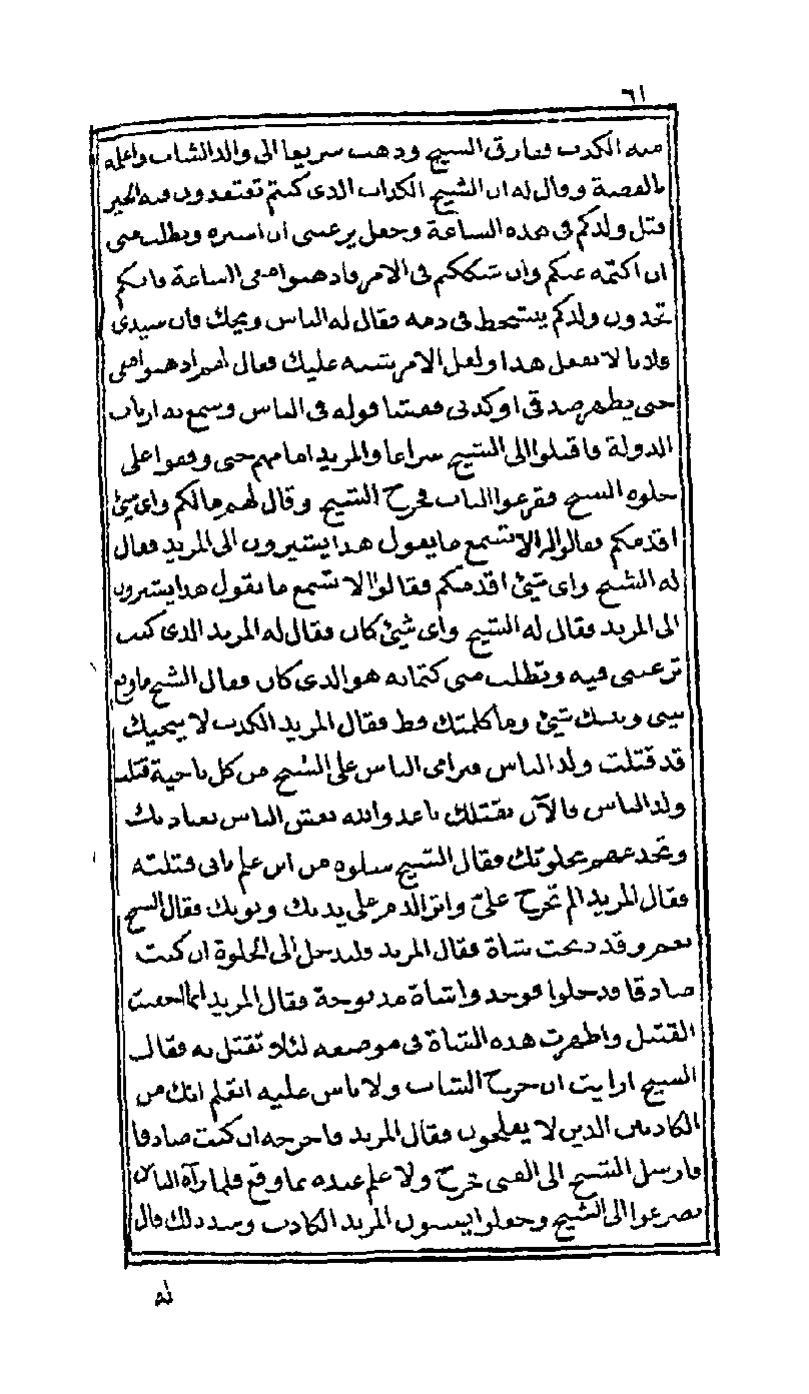 ٦١
منه الكذب ففارق الشيخ وذهب سريعا الى والد الشاب واعلمه
بالقصة وقال له ان الشيخ الكذاب الذى كنتم تعتقدون فيه الخير
قتل ولدكم فى هذه الساعة وجعل يرغبنى ان استره ويطلب منى
ان اكتمه عنكم وان شككتم فى الامر فاذهبوا معى الساعة فانكم
تجدون ولدكم يتشحط فى دمه فقال له الناس ويحك فان سيدى
فلانا لا يفعل هذا ولعل الامر يشبه عليك فقال لهم اذهبوا معى
حتى يظهر صدقى او كذبى ففشا قوله فى الناس وسمع به ارباب
الدولة فاقبلوا الى الشيخ سراعا والمريد امامهم حتى وقفوا على
خلوة الشيخ فقرعوا الباب فخرج الشيخ وقال لهم مالكم واى شئ
اقدمكم فقالوا له الا تسمع ما يقول هذا يشيرون الى المريد فقال
له الشيخ واى شئ اقدمكم فقالوا الا تسمع ما يقول هذا يشيرون
الى المريد فقال له الشيخ واى شئ كان فقال له المريد الذى كنت
ترغبنى فيه وتطلب منى كتمانه هو الذى كان فقال الشيخ ما وقع
بينى وبينك شئ وما كلمتك قط فقال المريد الكذب لا ينجيك
قد قتلت ولد الناس فترامى الناس على الشيخ من كل ناحية قتلت
ولد الناس فالآن نقتلك يا عدو الله تغش الناس بعبادتك
وتخدعهم بخلوتك فقال الشيخ سلوه من اين علم بانى قتلته
فقال المريد الم تخرج علىّ واثر الدم على يديك وثوبك فقال الشيخ
نعم وقد ذبحت شاة فقال المريد فلندخل الى الخلوة ان كنت
صادقا فدخلوا فوجدوا شاة مذبوحة فقال المريد انما اخفيت
القتيل واظهرت هذه الشاة فى موضعه لئلا تقتل به فقال
الشيخ ارايت ان خرج الشاب ولا باس عليه اتعلم انك من
الكاذبين الذين لا يفلحون فقال المريد فاخرجه ان كنت صادقا
فارسل الشيخ الى الفتى فخرج ولا علم عنده بما وقع فلما رآه الناس
تضرعوا الى الشيخ وجعلوا يسبون المريد الكاذب وعند ذلك قال
له